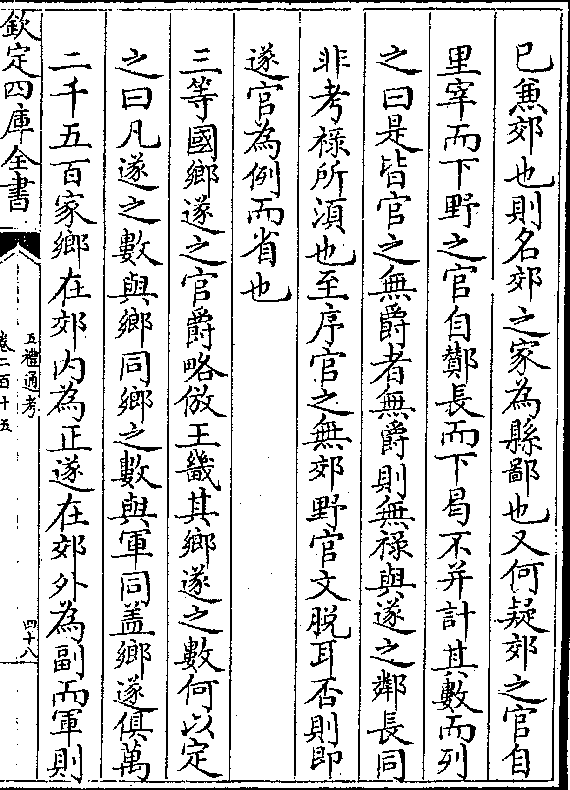 已兼郊也則名郊之家為縣鄙也又何疑郊之官自
里宰而下野之官自酇長而下曷不并計其數而列
之曰是皆官之無爵者無爵則無祿與遂之鄰長同
非考祿所湏也至序官之無郊野官文脫耳否則即
遂官為例而省也
三等國鄉遂之官爵略倣王畿其鄉遂之數何以定
之曰凡遂之數與鄉同鄉之數與軍同盖鄉遂俱萬
二千五百家鄉在郊内為正遂在郊外為副而軍則
欽定四庫全書
五禮通考
卷二百十五
四十八